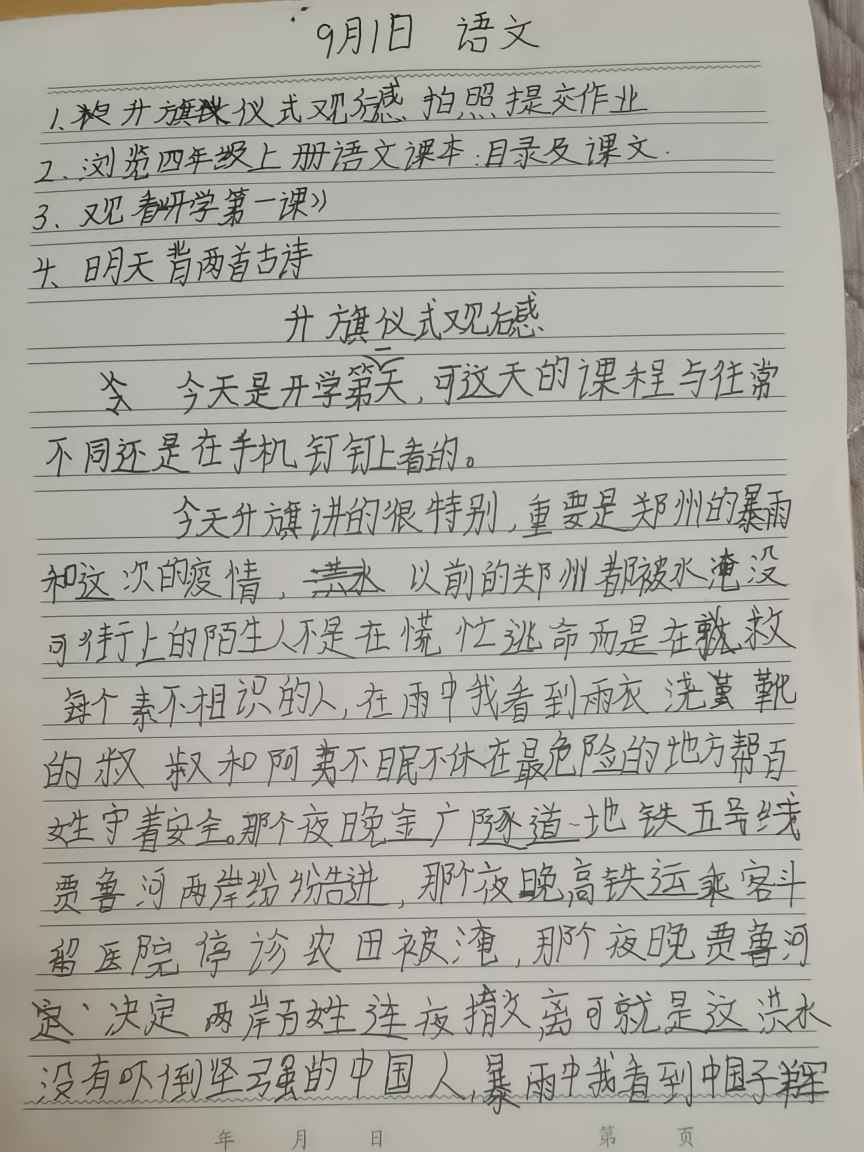 9月1日 语文
1、升旗仪式观后感 拍照提交作业
2. 浏览四年级上册语文课本:目录及课文.
3、观看《开学第一课》
4、明天背两首古诗
升旗仪式观后感
今天是开学第一天,可这天的课程与往常
不同还是在手机钉钉上看的。
今天升旗讲的很特别,重要是郑州的暴雨
和这次的疫情,以前的郑州都被水淹没
可街上的陌生人不是在慌忙逃命而是在救
每个素不相识的人,在雨中我看到雨衣浇 靴
的叔叔和阿姨不眠不休在最危险的地方帮百
姓守着安全。那个夜晚金广隧道、地铁五号线
贾鲁河两岸纷纷告进,那个夜晚高铁运乘客斗
留医院停诊农田被淹,那个夜晚贾鲁河
决定两岸百姓连夜撤离可就是这洪水
没有吓倒坚强的中国人,暴雨中我看到中国子
年 月 日 第 页